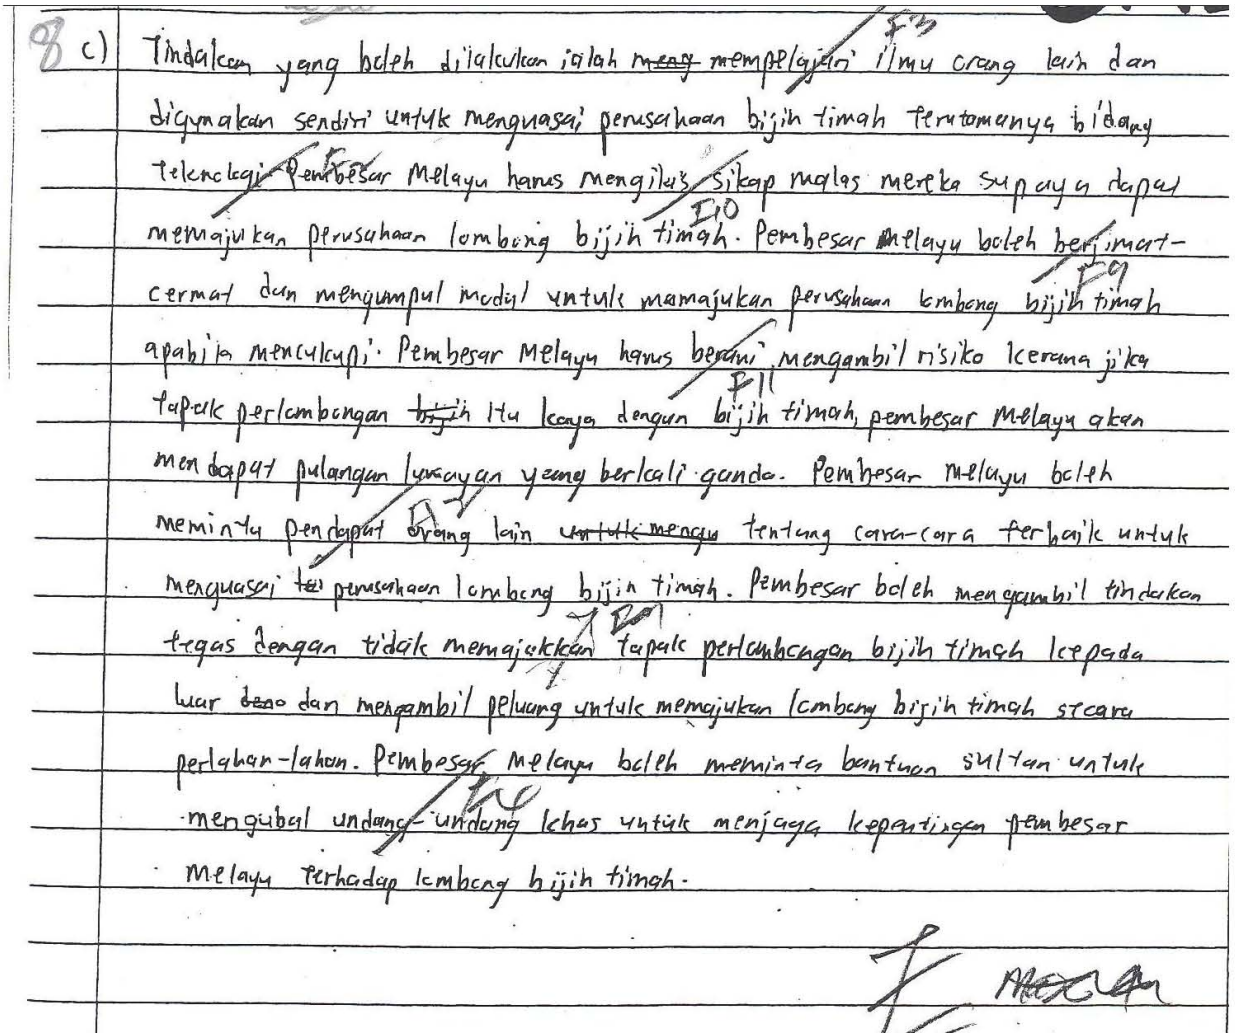 8 c) Tindakan yang boleh dilakukan ialah meng mempelajari ilmu orang lain dan F3
digunakan sendiri untuk menguasai perusahaan bijih timah terutamanya bidang
teknologi. Pembesar Melayu harus mengikis sikap malas mereka supaya dapat
F10
memajukan perusahaan lombong bijih timah. Pembesar Melayu boleh berjimat-
F9
cermat dan mengumpul modal untuk mamajukan perusahaan lombong bijih timah
apabila mencukupi. Pembesar Melayu harus berani mengambil risiko kerana jika
F11
tapak perlombongan bijih itu kaya dengan bijih timah, pembesar Melayu akan
mendapat pulangan lumayan yang berkali ganda. Pembesar Melayu boleh
meminta pendapat orang lain untuk mengu tentang cara-cara terbaik untuk
menguasai perusahaan lombong bijih timah. Pembesar boleh mengambil tindakan
tegas dengan tidak memajakkan tapak perlombongan bijih timah kepada
luar dan mengambil peluang untuk memajukan lombong bijih timah secara
perlahan-lahan. Pembesar Melayu boleh meminta bantuan sultan untuk
mengubal undang-undang khas untuk menjaga kepentingan pembesar
Melayu terhadap lombong bijih timah.